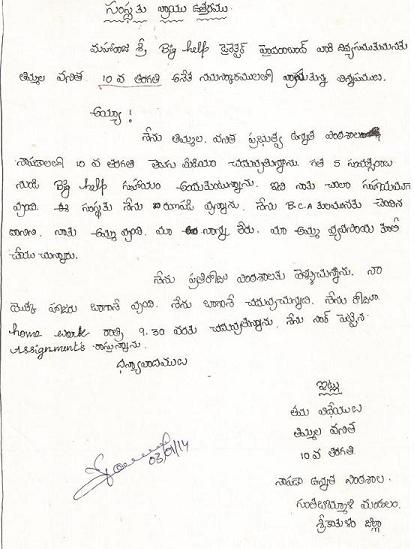 సంస్థకు వ్రాయు ఉత్తరము
మహారాజ శ్రీ Big help డైరెక్టర్ హైదరాబాద్ వారి దివ్యసముఖమునకు
తిమ్మల వనిత 10 వ తరగతి అనేక నమస్కారములతో వ్రాయుచున్న విన్నపములు.
అయ్యా !
నేను తిమ్మల. వనిత ప్రభుత్వ ఉన్నత పాఠశాల
10 వ తరగతి తెలుగు మీడియం చదువుతున్నాను. గత 5 సంవత్సరాల
నుండి Big help సహాయం పొందుతున్నాను. ఇది నాకు చాలా సహాయముగా
వుంది. ఈ సంస్థకు నేను వున్నాను. నేను B.C.A కులమునకు చెందిన
దానను. నాకు అమ్మ వుంది. మా నాన్న లేరు. మా అమ్మ వ్యవసాయ కూలి
చేయు చున్నారు.
నేను ప్రతిరోజు పాఠశాలకు వెళ్ళుచున్నాను. నా
యొక్క హాజరు బాగానే వుంది. నేను బాగానే చదువుచున్నాను. నేను రోజూ
home work రాత్రి 9.30 వరకు చదువుతున్నాను. నేను సార్ చెప్పిన
Assignments రాస్తున్నాను.
ధన్యవాదములు
ఇట్లు
తమ విధేయులు
తిమ్మల వనిత
10 వ తరగతి
ఉన్నత పాఠశాల
మండలం.
శ్రీకాకుళం జిల్లా
03/01/14